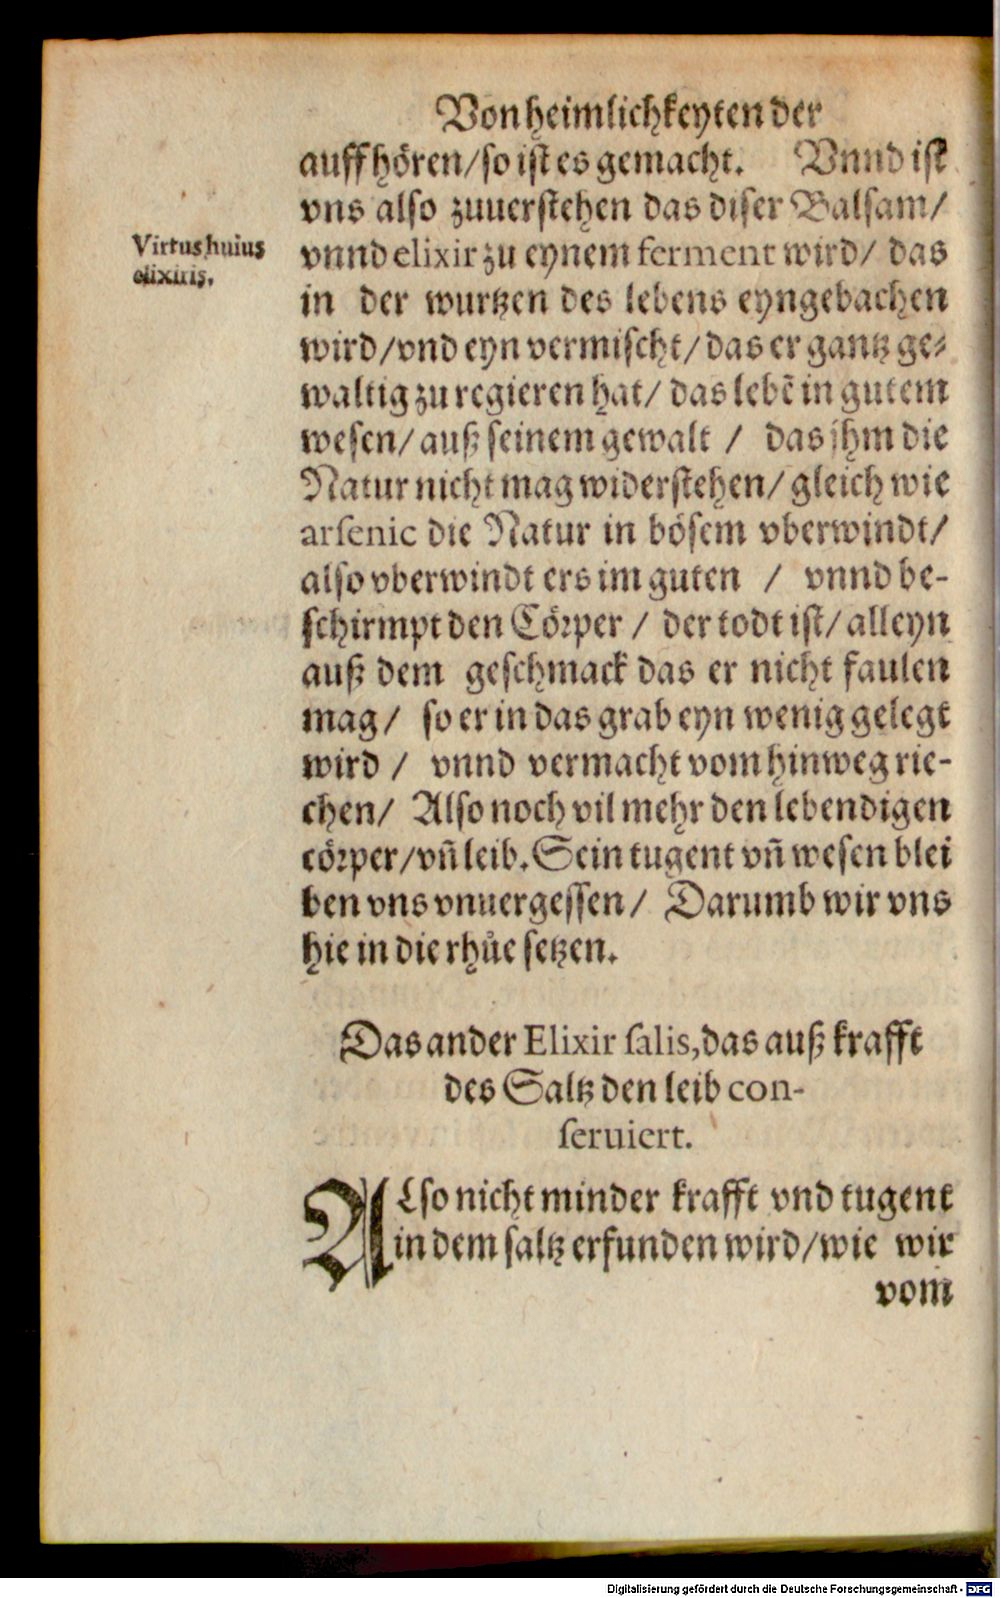 Von heimlichkeyten der
auffhören/so ist es gemacht. Vnnd ist
vns also zuuerstehen das diser Balsam/
Virtus huius
elixiris.
vnnd elixir zu eynem ferment wird/ das
in der wurtzen des lebens eyngebachen
wird/vnd eyn vermischt/das er gantz ge⸗
waltig zu regieren hat/ das lebẽ in gutem
wesen/auß seinem gewalt / das jhm die
Natur nicht mag widerstehen/gleich wie
arsenic die Natur in bösem vberwindt/
also vberwindt ers im guten / vnnd be-
schirmpt den Cörper / der todt ist/alleyn
auß dem geschmack das er nicht faulen
mag/ so er in das grab eyn wenig gelegt
wird / vnnd vermacht vom hinweg rie-
chen/ Also noch vil mehr den lebendigen
cörper/vñ leib. Sein tugent vñ wesen blei
ben vns vnuergessen/ Darumb wir vns
hie in die rhůe setzen.
Das ander Elixir salis, das auß krafft
des Saltz den leib con-
seruiert.
ALso nicht minder krafft vnd tugent
in dem saltz erfunden wird/wie wir
vom
Digitalisierung gefördert durch die Deutsche Forschungsgemeinschaft - DFG